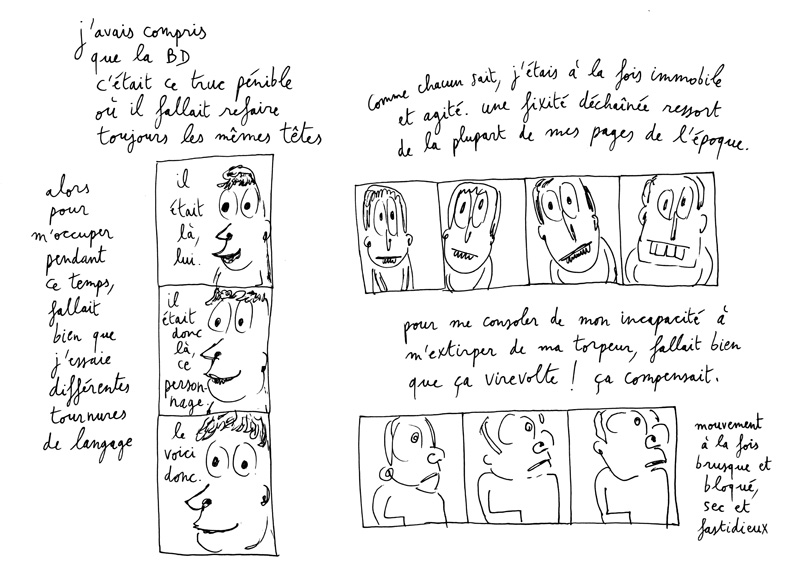 j'avais compris
que la BD
c'était ce truc pénible
où il fallait refaire
toujours les mêmes têtes
alors
pour
m'occuper
pendant
ce temps,
fallait
bien que
j'essaie
différentes
tournures
de langage
il
était
là,
lui.
il
était
donc
là,
ce
person-
nage.
le
voici
donc.
comme chacun sait, j'étais à la fois immobile
et agité. une fixité déchaînée ressort
de la plupart de mes pages de l'époque.
pour me consoler de mon incapacité à
m'extirper de ma torpeur, fallait bien
que ça virevolte ! ça compensait.
mouvement
à la fois
brusque et
bloqué,
sec et
fastidieux